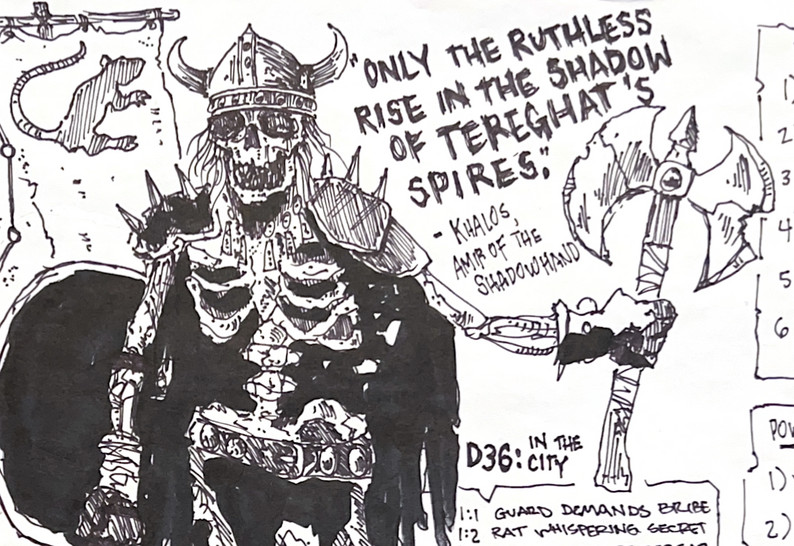 "ONLY THE RUTHLESS
RISE IN THE SHADOW
OF TEREGHAT'S
SPIRES."
- KHALOS,
AMIR OF THE
SHADOWHAND
D36: IN THE
CITY
1:1 GUARD DEMANDS BRIBE
1:2 RAT WHISPERING SECRET
1)
2
3
4
5
6
POW
1)
2)